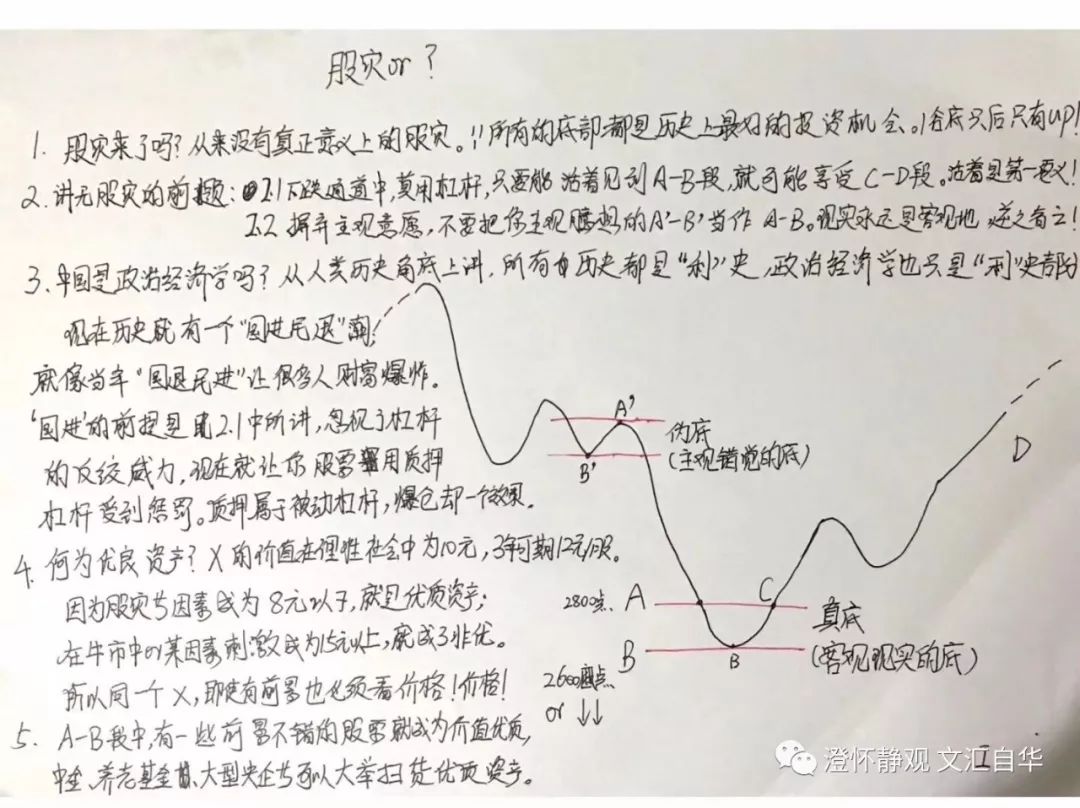 股灾or？
1. 股灾来了吗？从来没有真正意义上的股灾。!!所有的底部都是历史上最好的投资机会。谷底只后只有up!
2. 讲无股灾的前题：2.1下跌通道中，莫用杠杆，只要能活着见到A-B段，就可能享受C-D段。活着是第一要义！
2.2 摒弃主观意愿，不要把你主观臆想的A'-B'当作A-B。现实永远是客观地，逆之者亡！
3. 中国是政治经济学吗？从人类历史角底上讲，所有历史都是“利”史，政治经济学也只是“利”史部分
现在历史就有一个“国进民退”潮！
就像当年“国退民进”让很多人财富爆炸。
‘国进’的前提是2.1中所讲，忽视了杠杆
的反绞威力，现在就让你股票用质押
杠杆受到惩罚。质押属于被动杠杆，爆仓却一个效果。
4. 何为优良资产？X的价值在理性社会中为10元，3年可期12元/股。
因为股灾与因素成为8元以下，就是优质资产；
在牛市中以某因素刺激成为15元以上，就成了非优。
所以同一个X，即使有前景也必须看价格！价格！
5. A-B段中，有一些前景不错的股票就成为价值优质，
中金、养老基金、大型央企与可以大举扫货优质资产。
A'
B'
伪底
(主观错觉的底)
D
2800点 A
C
真底
B
B
(客观现实的底)
2600点
or ↓↓
I
澄怀静观 文汇自华